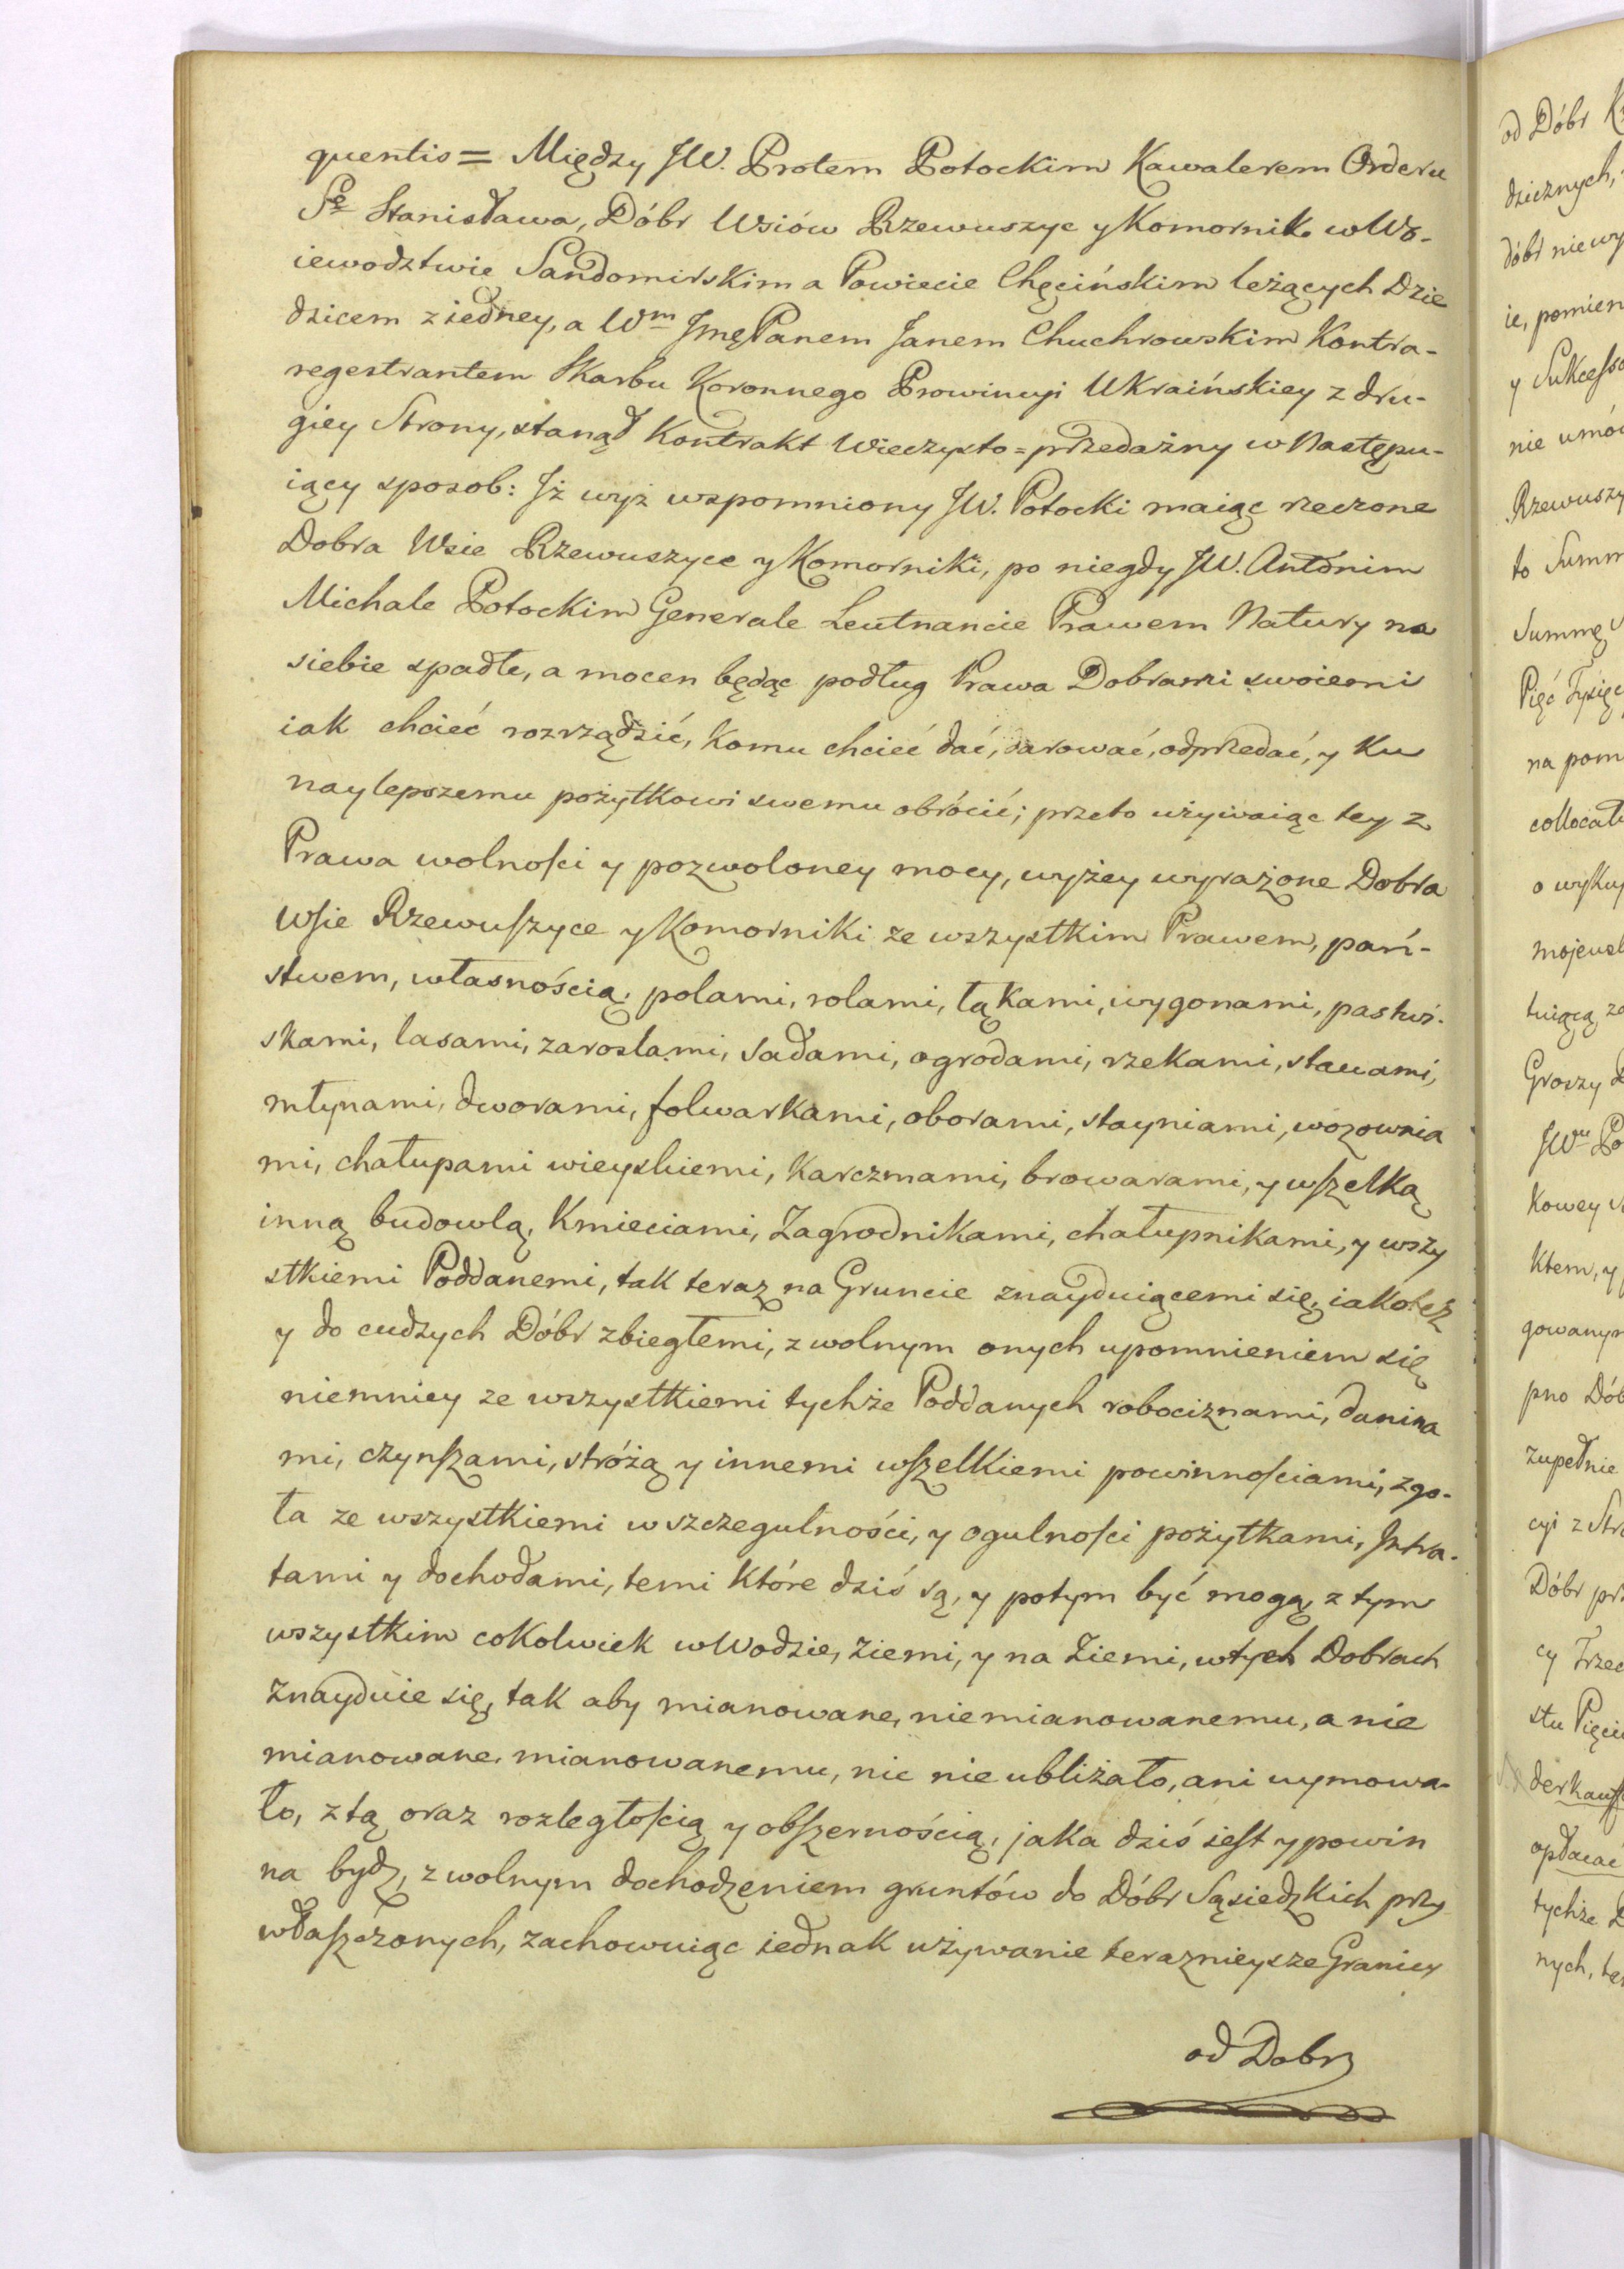 quentis = Między JW. Protem Potockim Kawalerem Orderu
Sgo Stanisława, Dóbr Wsiów Rzewuszyc y Komornik w Wo-
iewodztwie Sandomirskim a Powiecie Chęcińskim leżących Dzie
dzicem z iedney, a Wm Jmę Panem Janem Chuchrowskim Kontra-
regestrantem Skarbu Koronnego Prowincyi Ukraińskiey z dru-
giey Strony, stanął Kontrakt Wieczysto = przedażny w Następu-
iący sposob: Jż wyż wspomniony JW. Potocki maiąc rzeczone
Dobra Wsie Rzewuszyce y Komorniki, po niegdy JW. Antonim
Michale Potockim Generale Leutnancie Prawem Natury na
siebie spadłe, a mocen będąc podług Prawa Dobrami swoiemi
iak chcieć rozrządzić, komu chcieć dać, darować, odprzedać, y ku
naylepszemu pożytkowi swemu obrócić; przeto używaiąc tey z
Prawa wolności y pozwoloney mocy, wyżey wyrażone Dobra
Wsie Rzewuszyce y Komorniki ze wszystkim Prawem, pań-
stwem, własnością, polami, rolami, łąkami, wygonami, pastwi-
skami, lasami, zaroslami, sadami, ogrodami, rzekami, stawami,
młynami, dworami, folwarkami, oborami, stayniami, wozownia
mi, chałupami wieyskiemi, karczmami, browarami, y wszelką
inną budowlą, Kmieciami, Zagrodnikami, chałupnikami, y wszy
stkiemi Poddanemi, tak teraz na Gruncie znayduiącemi się, iakoteż
y do cudzych Dóbr zbiegłemi, z wolnym onych upomnieniem się
niemniey ze wszystkiemi tychże Poddanych robociznami, danina
mi, czynszami, stróżą y innemi wszelkiemi powinnościami, zgo-
ła ze wszystkiemi w szczegulności, y ogulności pożytkami, Jntra-
tami y dochodami, temi które dziś są, y potym być mogą, z tym
wszystkim cokolwiek w Wodzie, Ziemi, y na Ziemi, w tych Dobrach
znayduie się, tak aby mianowane, niemianowanemu, a nie
mianowane, mianowanemu, nic nie ubliżało, ani uymowa-
ło, z tą oraz rozległością y obszernością, jaka dziś iest y powin
na bydź, z wolnym dochodzeniem gruntów do Dóbr Sąsiedzkich przy
właszczonych, zachowuiąc iednak używanie teraznieysze Granicy
od Dobr
od Dóbr
dzicznych,
dóbr nie wy
ie, pomien
y Sukcesso
nie umó
Rzewuszy
to Summ
Summę
Pięć Tysięc
na pom
collocat
o wyku
tuiącą za
Groszy
JWu Po
kowey
ktem, y
gowanym
pno Dób
zupełnie
cyi z Str
Dóbr prz
cy Trzec
stu Pięciu
opłacać
tychże D
nych, te